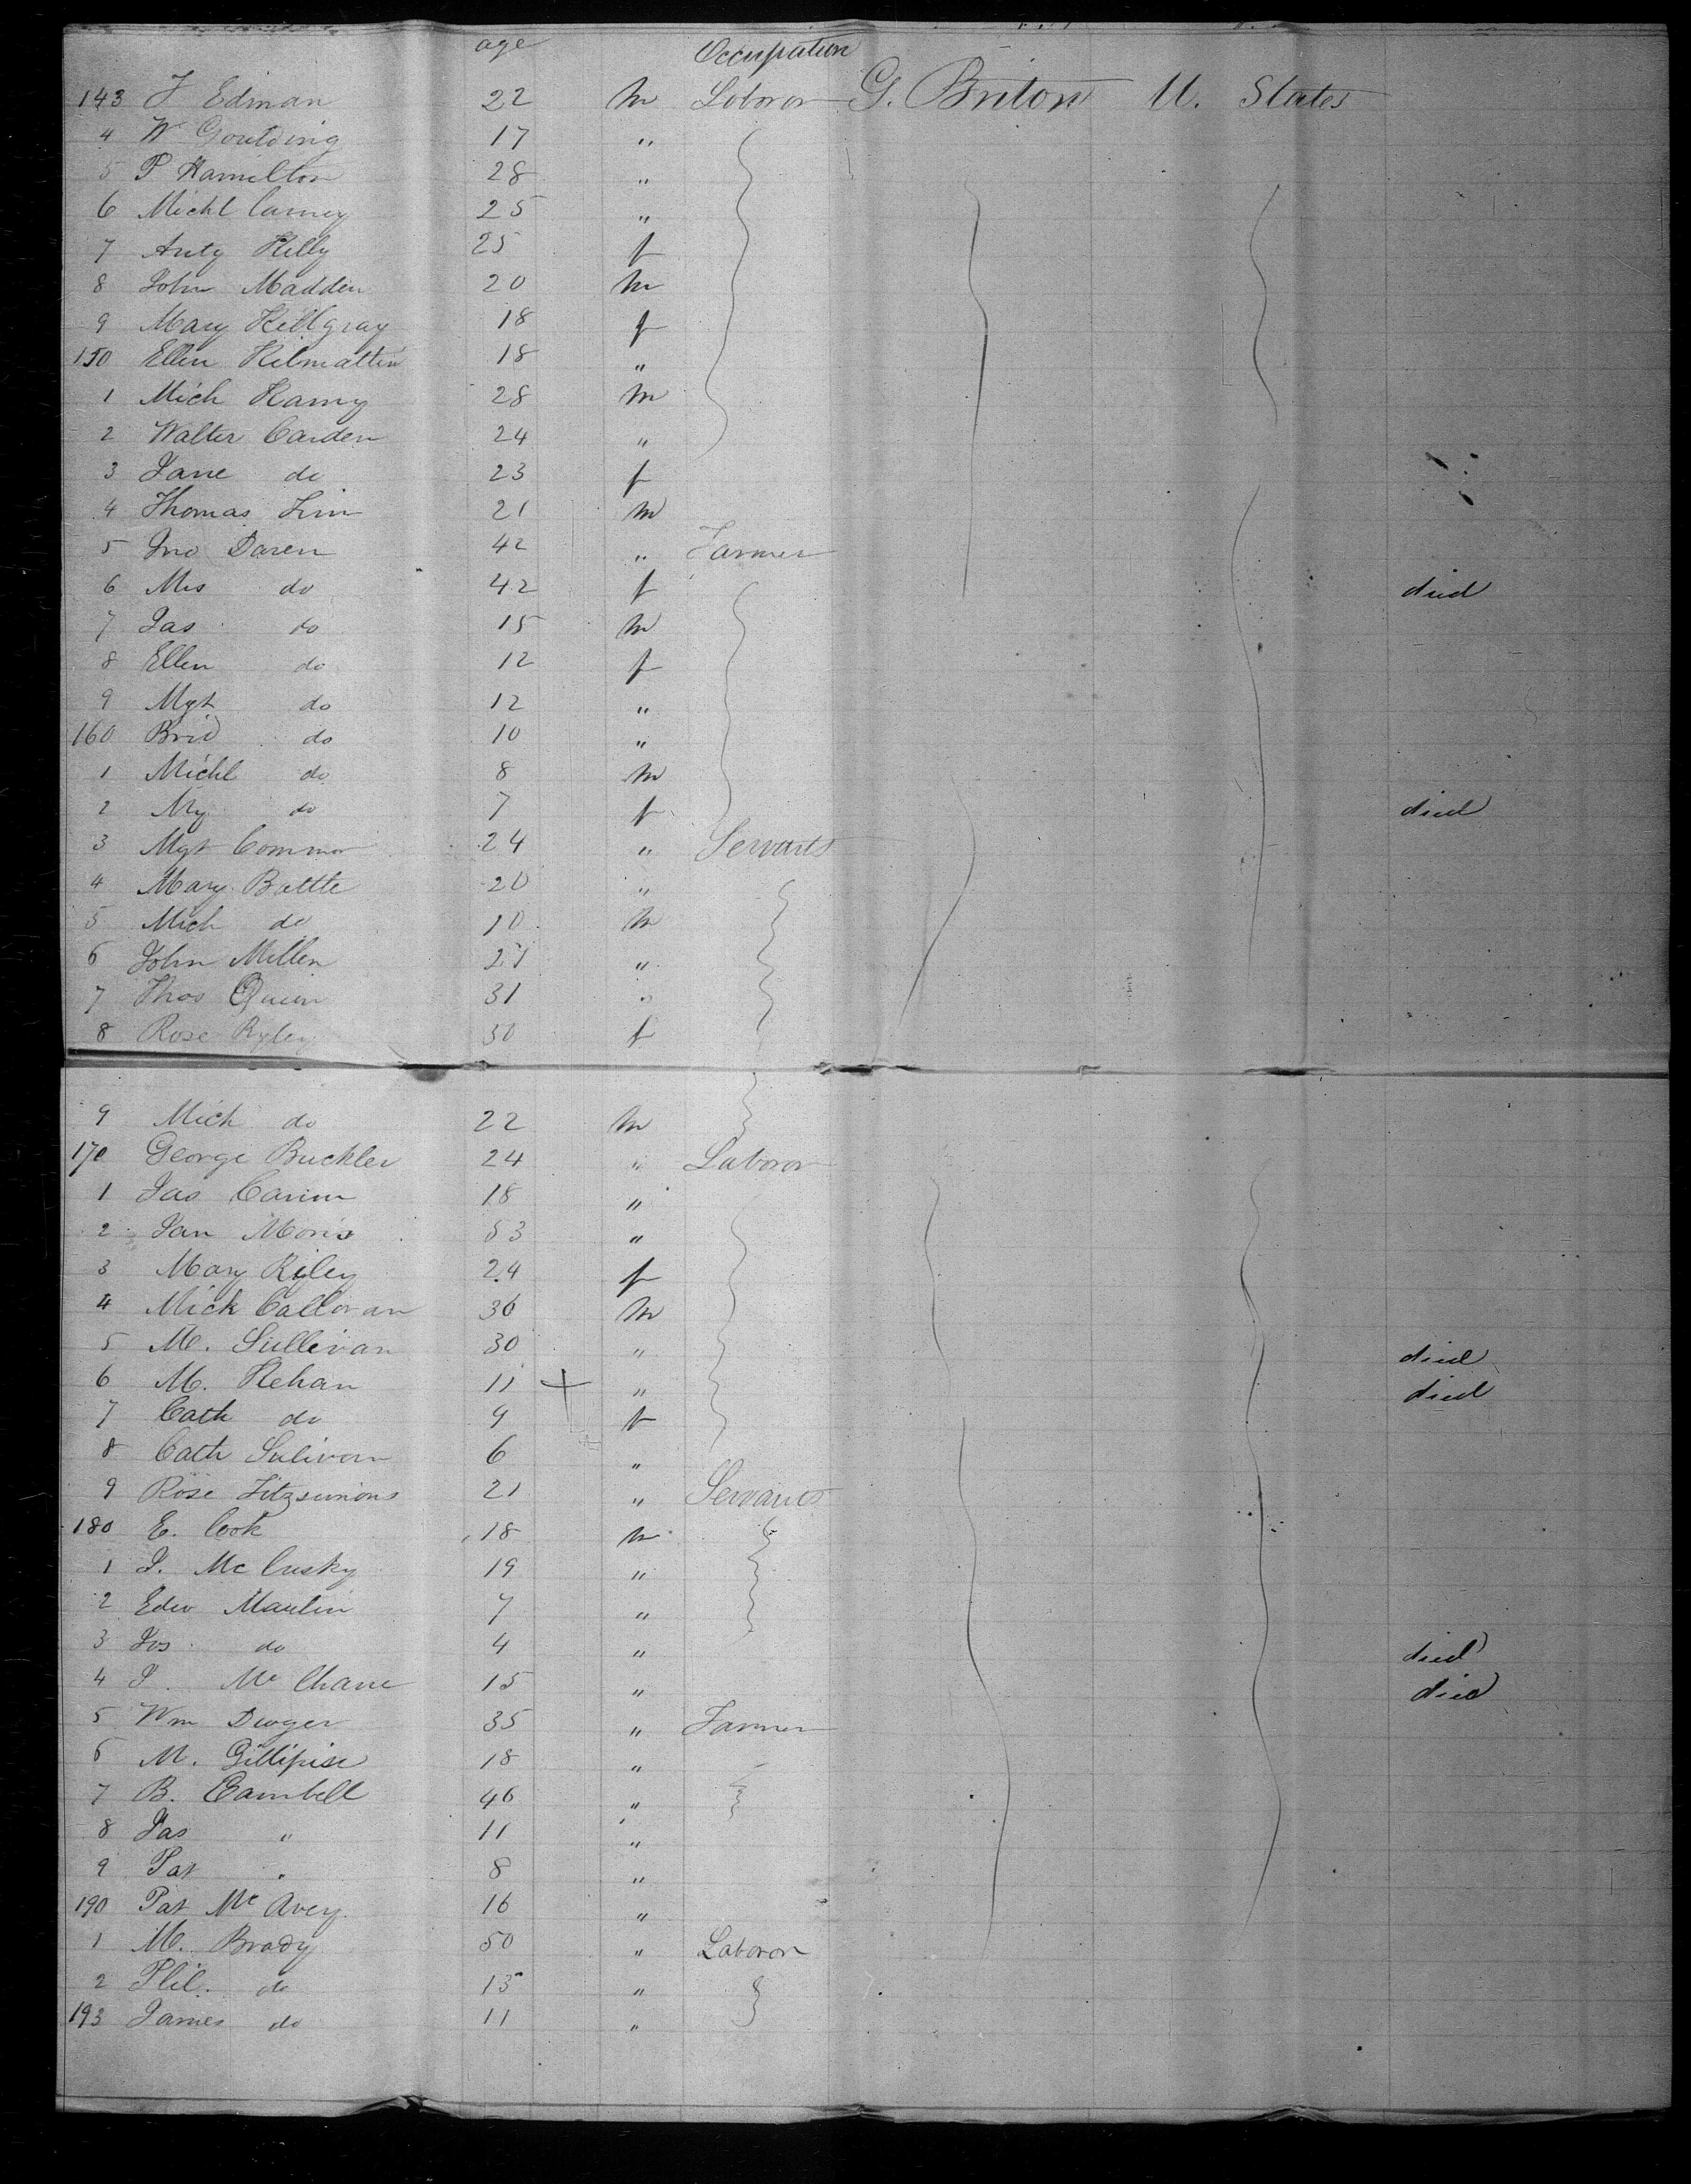 age Occupation
143 J Edman 22 m Loboror G. Briton U. States
4 W Goulding 17 "
5 P Hamilton 28 "
6 Michl Carney 25 "
7 Anty Kelly 25 f
8 John Madden 20 m
9 Mary Killgray 18 f
150 Ellen Kilmattin 18 "
1 Mich Kamy 28 m
2 Walter Carden 24 "
3 Jane do 23 f
4 Thomas 21 m
5 Jno Daren 42 " Farmer
6 Mrs do 42 f died
7 Jas do 15 m
8 Ellen do 12 f
9 Mgt do 12 "
160 Brid do 10 "
1 Michl do 8 m
2 My do 7 f died
3 Mgt Common 24 " Servants
4 Mary Battle 20 "
5 Mich do 10 m
6 John Millen 21 "
7 Thos Quin 31 "
8 Rose Ryley 30 f
9 Mich do 22 m
170 George Buckler 24 " Laboror
1 Jas 18 "
2 Jan Moris 53 "
3 Mary Riley 24 f
4 Mick Callovan 36 m
5 M. Sullivan 30 " died
6 M. Kehan 11 + " died
7 Cath do 9 f
8 Cath Sulivan 6 "
9 Rose Fitzsimons 21 " Servants
180 E. Cook 18 m
1 J. Mc Cusky 19 "
2 Edw Maulin 7 "
3 Jos do 4 " died
4 J. Mc Chane 15 " died
5 Wm Dwyer 35 " Farmer
6 M. Gillipise 18 "
7 B. Cambell 46 "
8 Jas " 11 "
9 Pat " 8 "
190 Pat Mc Avey 16 "
1 M. Brady 50 " Laboror
2 Phil. do 13 "
193 James do 11 "